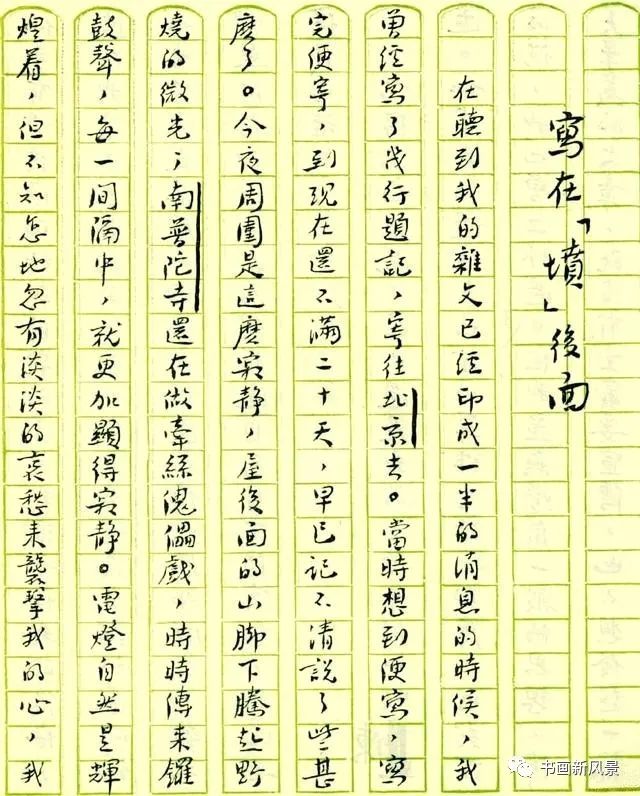 寫在「墳」後面
在聽到我的雜文已經印成一半的消息的時候，我
曾經寫了幾行題記，寄往北京去。當時想到便寫，寫
完便寄，到現在還不滿二十天，早已記不清說了些甚
麼了。今夜周圍是這麼寂靜，屋後面的山腳下騰起野
燒的微光；南普陀寺還在做牽絲傀儡戲，時時傳來鑼
鼓聲，每一間隔中，就更加顯得寂靜。電燈自然是輝
煌着，但不知怎地忽有淡淡的哀愁來襲擊我的心，我
书画新风景